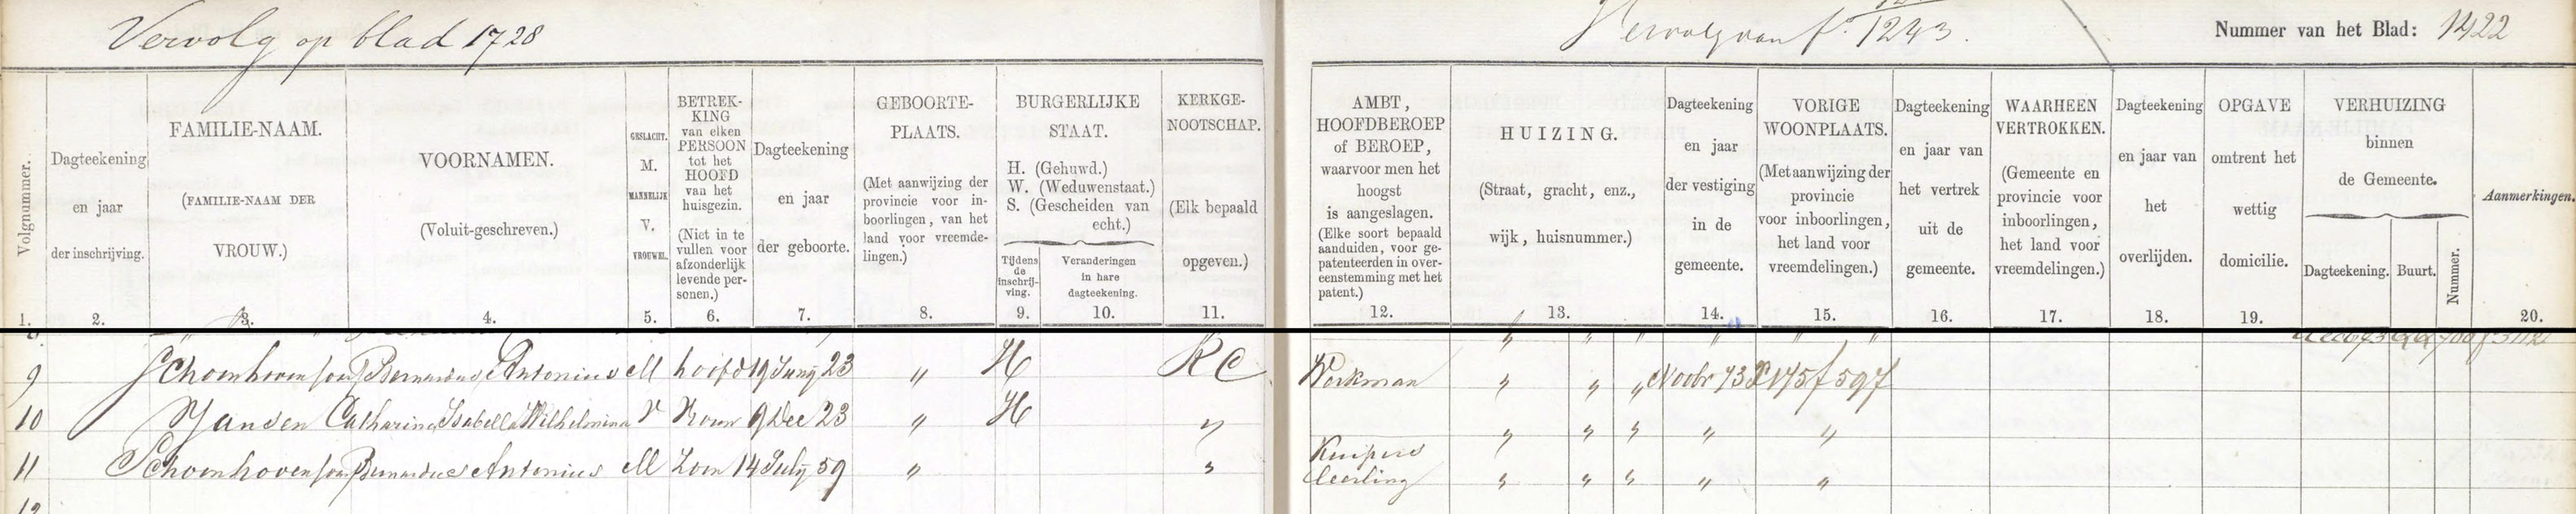 Vervolg op blad 1728
Vervolg van f. 1243.
Nummer van het Blad: 1422
Volgnummer.
1.
Dagteekening
en jaar
der inschrijving.
2.
FAMILIE-NAAM.
(FAMILIE-NAAM DER
VROUW.)
3.
VOORNAMEN.
(Voluit-geschreven.)
4.
GESLACHT.
M.
MANNELIJK
V.
VROUWEL.
5.
BETREK-
KING
van elken
PERSOON
tot het
HOOFD
van het
huisgezin.
(Niet in te
vullen voor
afzonderlijk
levende per-
sonen.)
6.
Dagteekening
en jaar
der geboorte.
7.
GEBOORTE-
PLAATS.
(Met aanwijzing der
provincie voor in-
boorlingen, van het
land voor vreemde-
lingen.)
8.
BURGERLIJKE
STAAT.
H. (Gehuwd.)
W. (Weduwenstaat.)
S. (Gescheiden van
echt.)
Tijdens
de
inschrij-
ving.
9.
Veranderingen
in hare
dagteekening.
10.
KERKGE-
NOOTSCHAP.
(Elk bepaald
opgeven.)
11.
AMBT,
HOOFDBEROEP
of BEROEP,
waarvoor men het
hoogst
is aangeslagen.
(Elke soort bepaald
aanduiden, voor ge-
patenteerden in over-
eenstemming met het
patent.)
12.
HUIZING.
(Straat, gracht, enz.,
wijk, huisnummer.)
13.
Dagteekening
en jaar
der vestiging
in de
gemeente.
14.
VORIGE
WOONPLAATS.
(Met aanwijzing der
provincie
voor inboorlingen,
het land voor
vreemdelingen.)
15.
Dagteekening
en jaar van
het vertrek
uit de
gemeente.
16.
WAARHEEN
VERTROKKEN.
(Gemeente en
provincie voor
inboorlingen,
het land voor
vreemdelingen.)
17.
Dagteekening
en jaar van
het
overlijden.
18.
OPGAVE
omtrent het
wettig
domicilie.
19.
VERHUIZING
binnen
de Gemeente.
Dagteekening.
Buurt.
Nummer.
Aanmerkingen.
20.
9 Schoonhoven Bernardus Antonius M hoofd 19 Juny 23 " H RC Werkman " " " Novbr 73 f 597
10 Jansen Catharina Isabella Wilhelmina V Vrouw 9 Dec 23 " H " " " " " "
11 Schoonhoven Bernardus Antonius M Zoon 14 July 59 " " Kuipers " " " " "
leerling
12